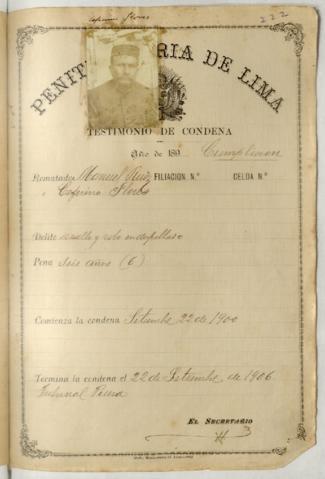 Ceferino Flores
222
PENITENCIARIA DE LIMA
TESTIMONIO DE CONDENA
Año de 189 Cumplieron
Rematados Manuel Ruiz FILIACION N.º CELDA N.º
Ceferino Flores
Delito asalto y robo en despoblado
Pena Seis años (6)
Comienza la condena Setiembre 22 de 1900
Termina la condena el 22 de Setiembre de 1906
Tribunal Piura
EL SECRETARIO